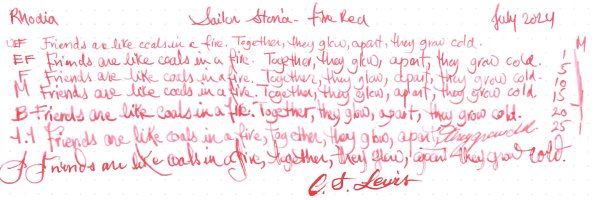 Rhodia Sailor Storia - Fire Red July 2024
M
UEF Friends are like coals in a fire. Together, they glow, apart, they grow cold.
EF Friends are like coals in a fire. Together, they glow, apart, they grow cold. 1
F Friends are like coals in a fire. Together, they glow, apart, they grow cold. 5
M Friends are like coals in a fire. Together, they glow, apart, they grow cold. 10
B - Friends are like coals in a fire. Together, they glow, apart, they grow cold. 15
20
1.1 Friends are like coals in a fire, Together, they glow, apart they grow cold. 25
Friends are like coals in a fire, together, they glow, apart they grow cold.
C. S. Lewis